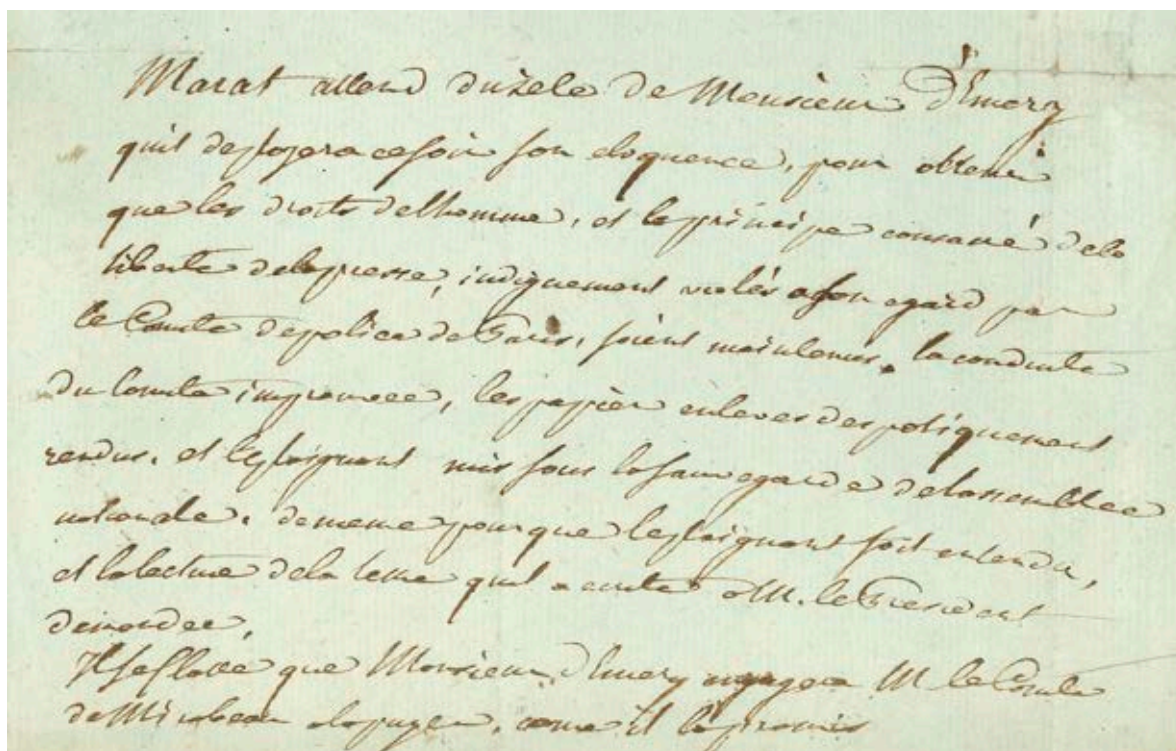 Marat attend du zele de Monsieur d'Emery
quil deployera ce soir son eloquence, pour obtenir
que les droits de lhomme, et le principe consacré de la
liberte de la presse, indignement violés a son egard par
le Comite de police de Paris, soient maintenus, la conduite
du Comite improuvee, les papiers enleves despotiquement
rendus, et le plaignant mis sous la sauvegarde de lassemblee
nationale. de meme pour que le plaignant soit entendu,
et la lecture de la lettre quil a ecrite a M. le President
demandee,
Il se flatte que Monsieur d'Emery engagera M le Comte
de Mirabeau a lapuyer, come il la promis